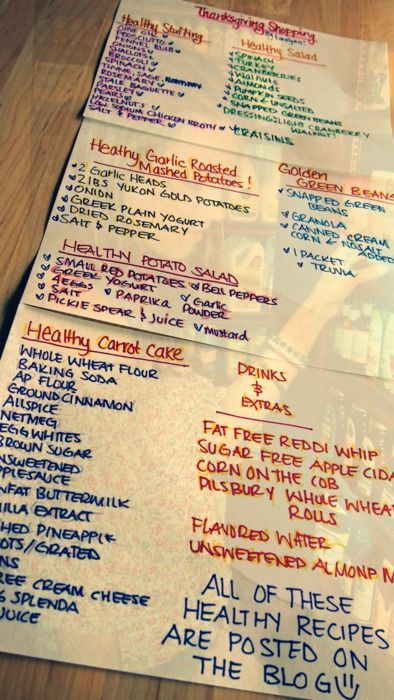 Thanksgiving Shopping
Healthy Stuffing
OLIVE OIL
PROSCIUTTO
FENNEL BULB
ONIONS
SHALLOTS
BROCCOLI
SPINACH
THYME, SAGE,
ROSEMARY
STALE BAGUETTE
PARSLEY
PEARS
HAZELNUTS
SODIUM CHICKEN BROTH
SALT & PEPPER
Healthy Salad
SPINACH
TURKEY
CRANBERRIES
WALNUTS
ALMONDS
PUMPKIN SEEDS
CORN UNSALTED
SNAPPED GREEN BEANS
DRESSING: LIGHT CRANBERRY
WALNUT!
RAISINS
Heathy Garlic Roasted
Mashed Potatoes!
2 GARLIC HEADS
2 lBS YUKON GOLD POTATOES
ONION
GREEK PLAIN YOGURT
DRIED ROSEMARY
SALT & PEPPER
Golden
GREEN BEANS
SNAPPED GREEN
BEANS
GRANOLA
CANNED CREAM
CORN & NO SALT
ADDED
1 PACKET
TRUVIA
HEALTHY POTATO SALAD
SMALL RED POTATOES BELL PEPPERS
GREEK YOGURT
EGGS PAPRIKA Garlic
SALT POWDER
PICKLE SPEAR & JUICE Mustard
Healthy Carrot Cake
WHOLE WHEAT FLOUR
BAKING SODA
AP FLOUR
GROUND CINNAMON
ALLSPICE
NUTMEG
EGG WHITES
BROWN SUGAR
UNSWEETENED
APPLESAUCE
FAT BUTTERMILK
VANILLA EXTRACT
PINEAPPLE
GRATED
CREAM CHEESE
SPLENDA
JUICE
DRINKS
&
EXTRAS
FAT FREE REDDI WHIP
SUGAR FREE APPLE CIDA
CORN ON THE COB
PILSBURY WHOLE WHEAT
ROLLS
FLAVORED WATER
UNSWEETENED ALMOND M
ALL OF THESE
HEALTHY RECIPES
ARE POSTED ON
THE BLOG!!!